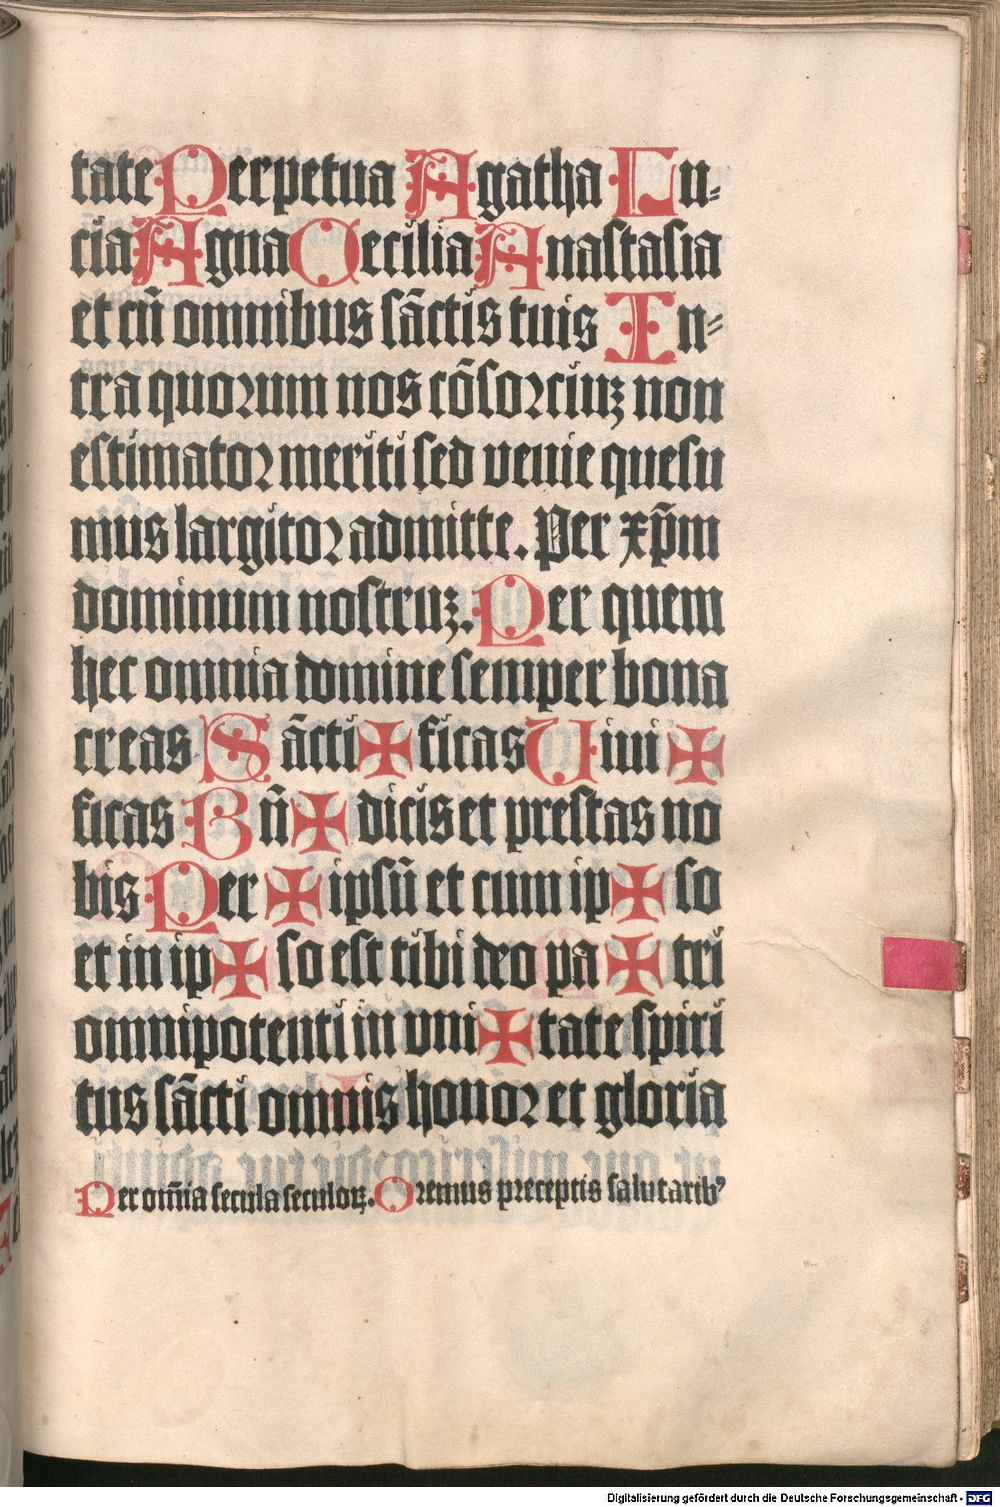 tate Perpetua Agatha Lu-
cia Agna Cecilia Anastasia
et cū omnibus sāctis tuis In-
tra quorum nos cōsorciuꝫ non
estimator meriti sed venie quesu
mus largitor admitte. Per xp̄m
dominum nostruꝫ. Per quem
hec omnia domine semper bona
creas Sācti ✠ ficas Uiui ✠
ficas Bn̄ ✠ dicis et prestas no
bis Per ✠ ipsū et cum ip ✠ so
et in ip ✠ so est tibi deo pa ✠ tri
omnipotenti in vni ✠ tate spiri
tus sācti omnis honor et gloria
Per om̄ia secula seculoꝝ. Oremus preceptis salutaribꝰ
Digitalisierung gefördert durch die Deutsche Forschungsgemeinschaft - DFG